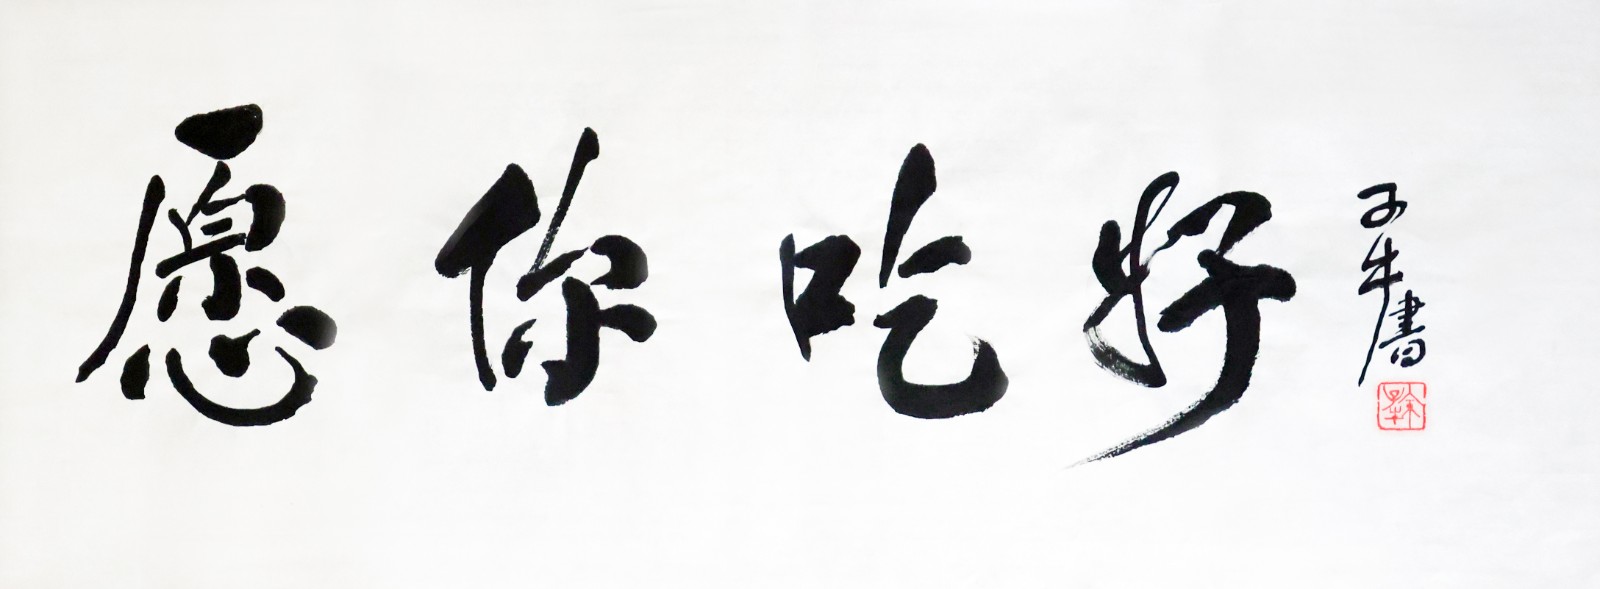 愿你吃好
子牛書